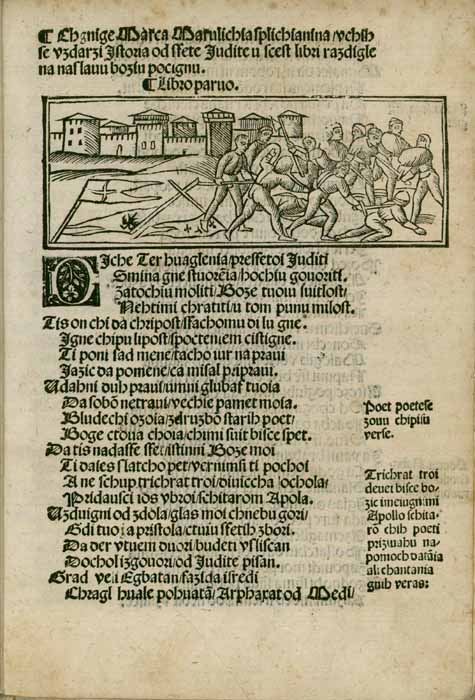 ¶ Chgnige Marca Marulichia splichianina / uchih
se uzdarzi Istoria od sfete Judite u scest libri razdigle
na na slauu boziu pocignu.
¶ Libro paruo.
Diche Ter huaglenia / presfetoi Juditi
Smina gne stuorēia / hochiu gouoriti.
Zatochiu moliti / Boze tuoiu suitlost /
Nehtimi chratiti / u tom punu milost.
Tis on chi da chripost / sfachomu di lu gne.
Igne chipu lipost / spocteniem cistigne.
Ti poni sad mene / tacho iur na praui
Jazic da pomene / ca misal pripraui.
Udahni duh praui / umni glubaf tuoia
Da sobōn netraui / uechie pamet moia.
Bludechi ozoia / zdruzbōn starih poet /
Boge ctoua choia / chimi suit bisce spet.
Da tis nadasfe sfet / istinni Boze moi
Ti daies slatcho pet / vernimsi ti pochoi
A ne schup trichrat troi / diuiccha ochola /
Pridausci ios vbroi / schitarom Apola.
Uzduigni od zdola / glas moi chnebu gori /
Gdi tuoia pristola / ctuiu sfetih zbori.
Da der vtuem duori / budeti vslisean
Dochol izgouori / od Judite pisan.
Grad veli Egbatan / sazida isredi
Chragl huale pohuatā / Arphaxat od Medi /
Poet poetese
zouu chipisiu
verse.
Trichrat troi
deuet bisce bo-
zic imeiugni mi
Apollo schita-
rō chih poeti
prizivahu na-
pomoch datāia
ali chantania
gnih veras: